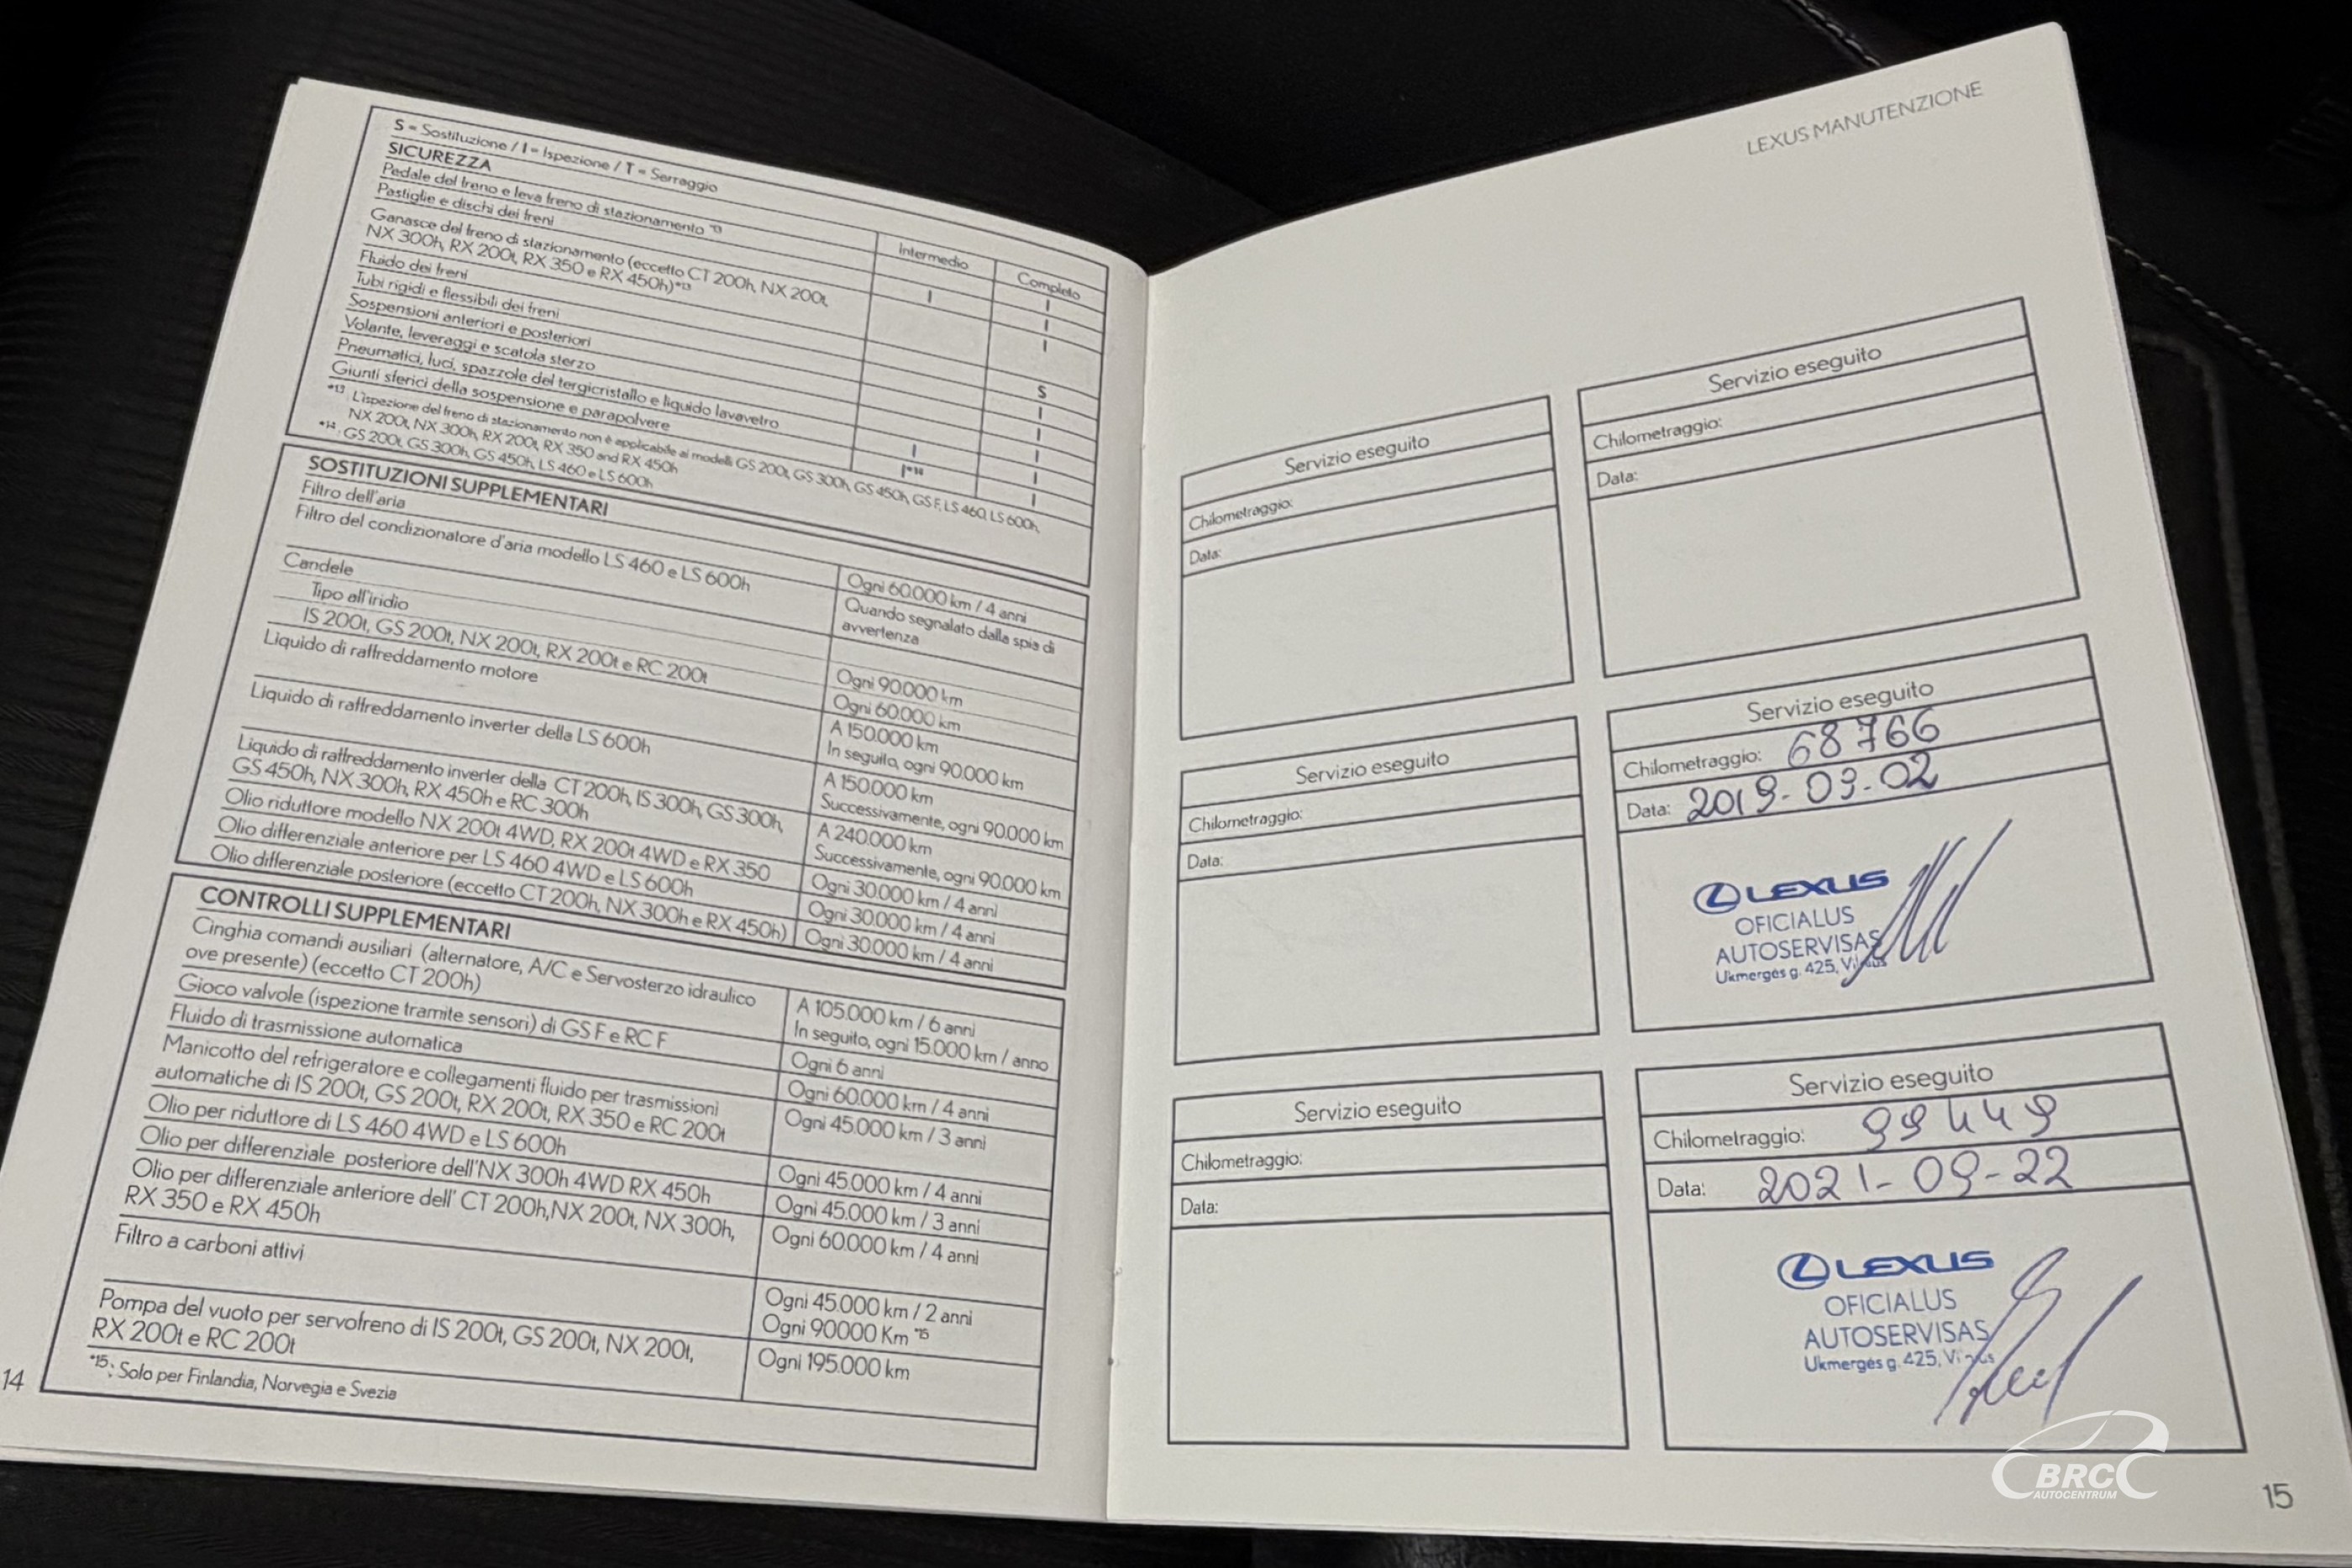 S = Sostituzione / I = Ispezione / T = Serraggio
SICUREZZA
Intermedio
Completo
Pedale del freno e leva freno di stazionamento *13
I
I
Pastiglie e dischi dei freni
I
Ganasce del freno di stazionamento (eccetto CT 200h, NX 200t,
NX 300h, RX 200t, RX 350 e RX 450h)*13
I
Fluido dei freni
S
Tubi rigidi e flessibili dei freni
I
Sospensioni anteriori e posteriori
I
Volante, leveraggi e scatola sterzo
I
Pneumatici, luci, spazzole del tergicristallo e liquido lavavetro
I
I
Giunti sferici della sospensione e parapolvere
I*14
I
*13: L'ispezione del freno di stazionamento non è applicabile ai modelli GS 200t, GS 300h, GS 450h, GS F, LS 460, LS 600h,
NX 200t, NX 300h, RX 200t, RX 350 and RX 450h
*14: GS 200t, GS 300h, GS 450h, LS 460 e LS 600h
SOSTITUZIONI SUPPLEMENTARI
Filtro dell'aria
Ogni 60.000 km / 4 anni
Filtro del condizionatore d'aria modello LS 460 e LS 600h
Quando segnalato dalla spia di
avvertenza
Candele
Tipo all'iridio
Ogni 90.000 km
IS 200t, GS 200t, NX 200t, RX 200t e RC 200t
Ogni 60.000 km
Liquido di raffreddamento motore
A 150.000 km
In seguito, ogni 90.000 km
Liquido di raffreddamento inverter della LS 600h
A 150.000 km
Successivamente, ogni 90.000 km
Liquido di raffreddamento inverter della CT 200h, IS 300h, GS 300h,
GS 450h, NX 300h, RX 450h e RC 300h
A 240.000 km
Successivamente, ogni 90.000 km
Olio riduttore modello NX 200t 4WD, RX 200t 4WD e RX 350
Ogni 30.000 km / 4 anni
Olio differenziale anteriore per LS 460 4WD e LS 600h
Ogni 30.000 km / 4 anni
Olio differenziale posteriore (eccetto CT 200h, NX 300h e RX 450h)
Ogni 30.000 km / 4 anni
CONTROLLI SUPPLEMENTARI
Cinghia comandi ausiliari (alternatore, A/C e Servosterzo idraulico
ove presente) (eccetto CT 200h)
A 105.000 km / 6 anni
In seguito, ogni 15.000 km / anno
Gioco valvole (ispezione tramite sensori) di GS F e RC F
Ogni 6 anni
Fluido di trasmissione automatica
Ogni 60.000 km / 4 anni
Manicotto del refrigeratore e collegamenti fluido per trasmissioni
automatiche di IS 200t, GS 200t, RX 200t, RX 350 e RC 200t
Ogni 45.000 km / 3 anni
Olio per riduttore di LS 460 4WD e LS 600h
Ogni 45.000 km / 4 anni
Olio per differenziale posteriore dell'NX 300h 4WD RX 450h
Ogni 45.000 km / 3 anni
Olio per differenziale anteriore dell' CT 200h,NX 200t, NX 300h,
RX 350 e RX 450h
Ogni 60.000 km / 4 anni
Filtro a carboni attivi
Ogni 45.000 km / 2 anni
Ogni 90000 Km *15
Pompa del vuoto per servofreno di IS 200t, GS 200t, NX 200t,
RX 200t e RC 200t
Ogni 195.000 km
*15: Solo per Finlandia, Norvegia e Svezia
14
LEXUS MANUTENZIONE
Servizio eseguito
Chilometraggio:
Data:
Servizio eseguito
Chilometraggio:
Data:
Servizio eseguito
Chilometraggio:
Data:
Servizio eseguito
Chilometraggio: 68766
Data: 2019-09-02
LEXUS
OFICIALUS
AUTOSERVISAS
Ukmergės g. 425, Vilnius
Servizio eseguito
Chilometraggio:
Data:
Servizio eseguito
Chilometraggio: 99449
Data: 2021-09-22
LEXUS
OFICIALUS
AUTOSERVISAS
Ukmergės g. 425, Vilnius
BRC
AUTOCENTRUM
15